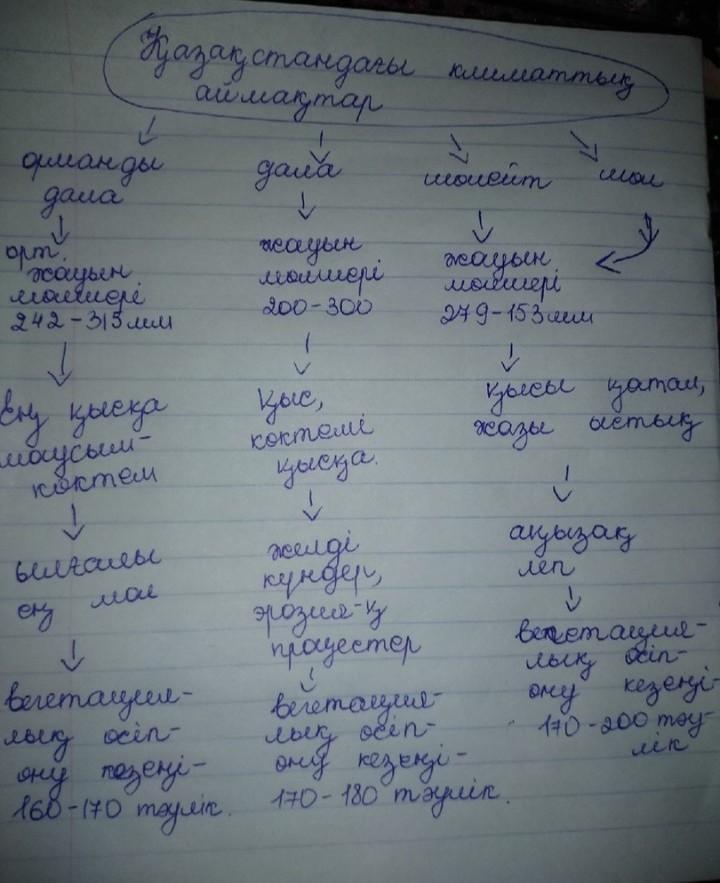 Қазақстандағы климаттық
аймақтар
орманды
дала
орт.
жауын
мөлшері
242-315мм
Ең қысқа
маусым-
көктем
ылғалы
ең мол
вегетация-
лық өсіп-
ону кезеңі-
160-170 тәулік.
дала
жауын
мөлшері
200-300
Қыс,
көктемі
қысқа.
желді
күндер,
эрозия-қ
процестер
вегетация-
лық өсіп-
ону кезеңі-
170-180 тәулік.
шөлейт
шөл
жауын
мөлшері
279-153мм
қысы қатал,
жазы ыстық
аңызақ
леп
вегетация-
лық өсіп-
ону кезеңі-
170-200 тәу-
лік